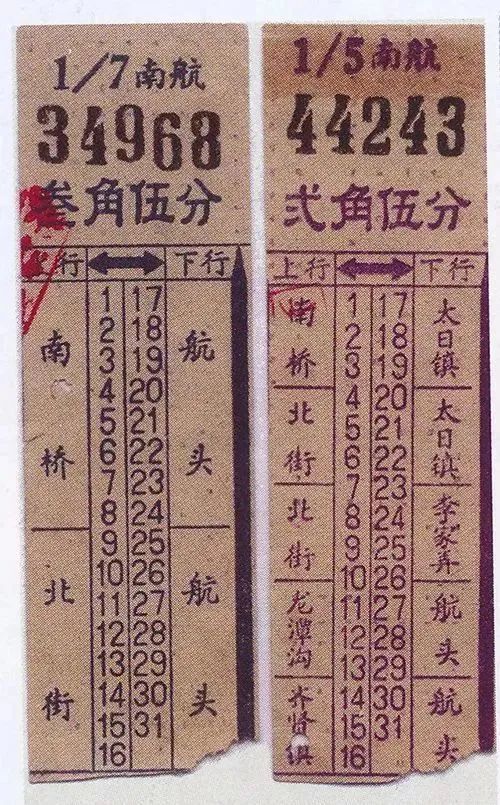 1/7南航
34968
叁角伍分
上行 下行
南桥
北街
1 17
2 18
3 19
4 20
5 21
6 22
7 23
8 24
9 25
10 26
11 27
12 28
13 29
14 30
15 31
16
航头
航头
1/5南航
44243
弍角伍分
上行 下行
南桥
北街
北街
龙潭沟
齐贤镇
1 17
2 18
3 19
4 20
5 21
6 22
7 23
8 24
9 25
10 26
11 27
12 28
13 29
14 30
15 31
16
太日镇
太日镇
李家弄
航头
航头